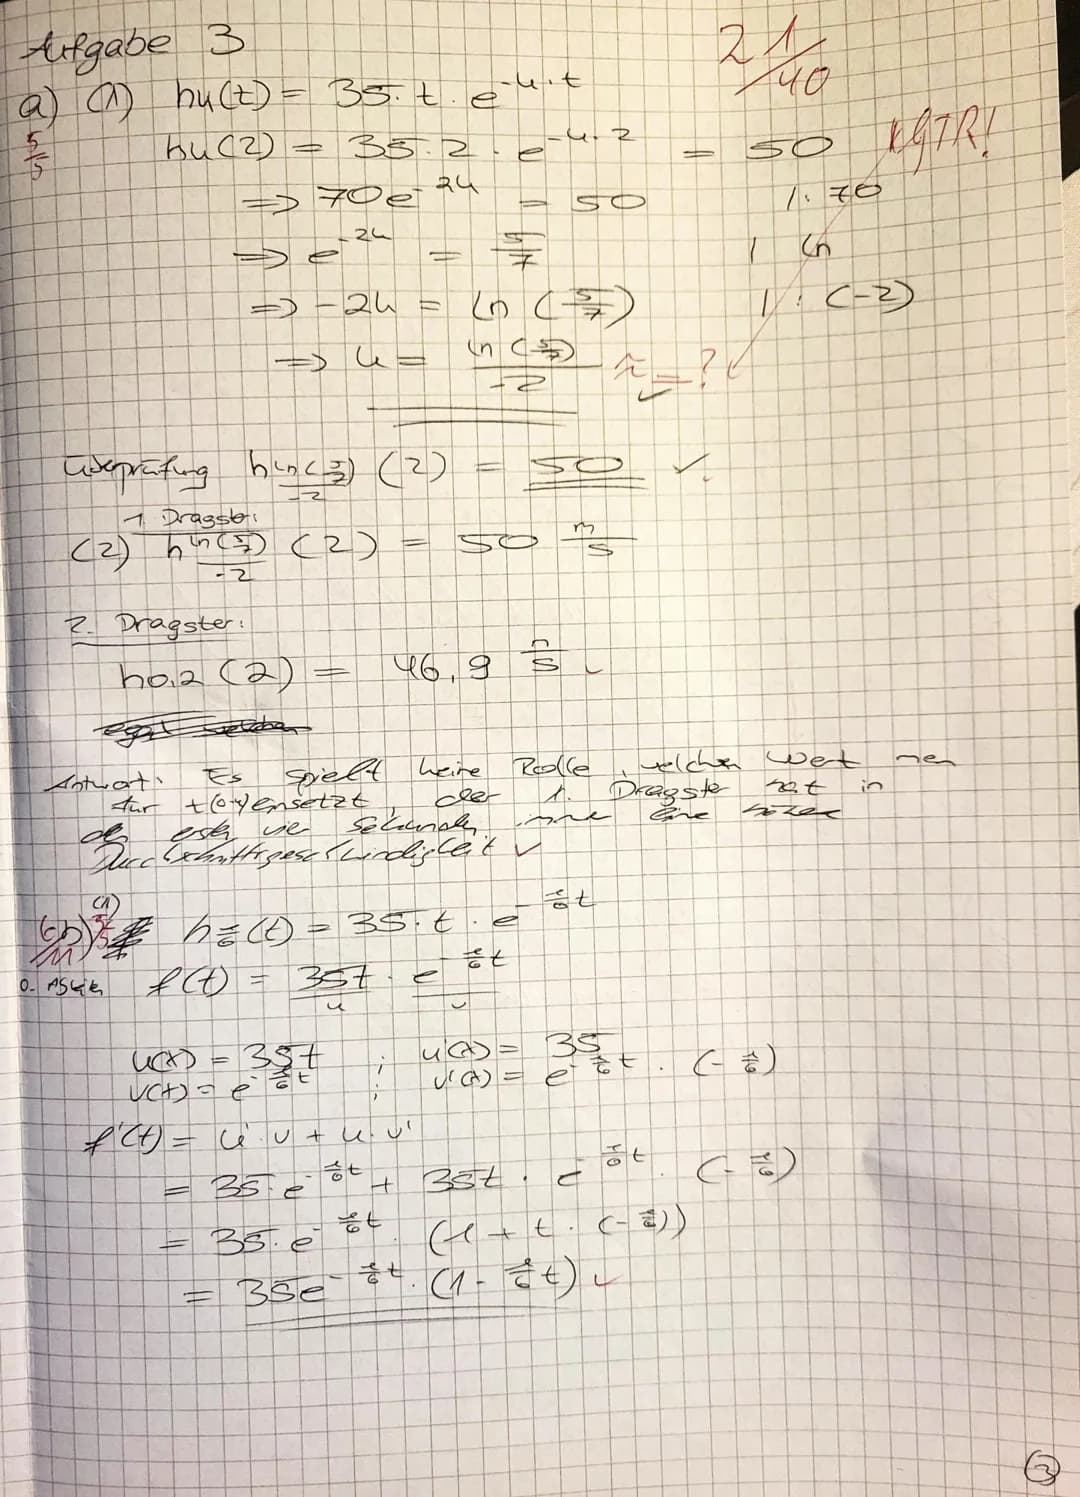 Aufgabe 3
21/40
a) (1) hu(t) = 35 · t · e^-u·t
5/5
hu(2) = 35 · 2 · e^-u·2 = 50
GTR!
=> 70e^-2u = 50 | : 70
=> e^-2u = 5/7 | ln
=> -2u = ln (5/7) | : (-2)
=> u = ln(5/7)/-2 ≈ = ? ✓
Überprüfung h ln(5/7)/-2 (2) = 50 ✓
1 Dragster:
(2) h ln(5/7)/-2 (2) = 50 m/s
2. Dragster:
h0,2 (2) = 46,9 m/s ✓
Antwort: Es spielt keine Rolle, welchen Wert man
für t(0-4) ensetzt, der 1. Dragster hat in
den ersten vier Sekunden immer eine höhere
Durchschnittsgeschwindigkeit ✓
b) (1) h 1/6 (t) = 35 · t · e^-1/6 t
f(t) = 35t · e^-1/6 t
u v
u(x) = 35t ; u'(x) = 35
v(t) = e^-1/6 t ; v'(x) = e^-1/6 t · (-1/6)
f'(t) = u' · v + u · v'
= 35 · e^-1/6 t + 35t · e^-1/6 t · (-1/6)
= 35 · e^-1/6 t · (1 + t · (-1/6))
= 35e^-1/6 t · (1 - 1/6 t) ✓
3